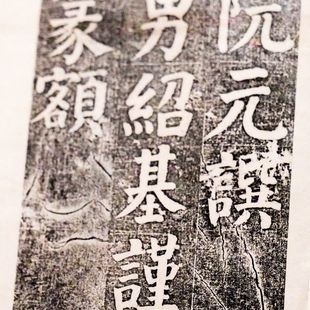 阮元譔
男紹基謹
篆額